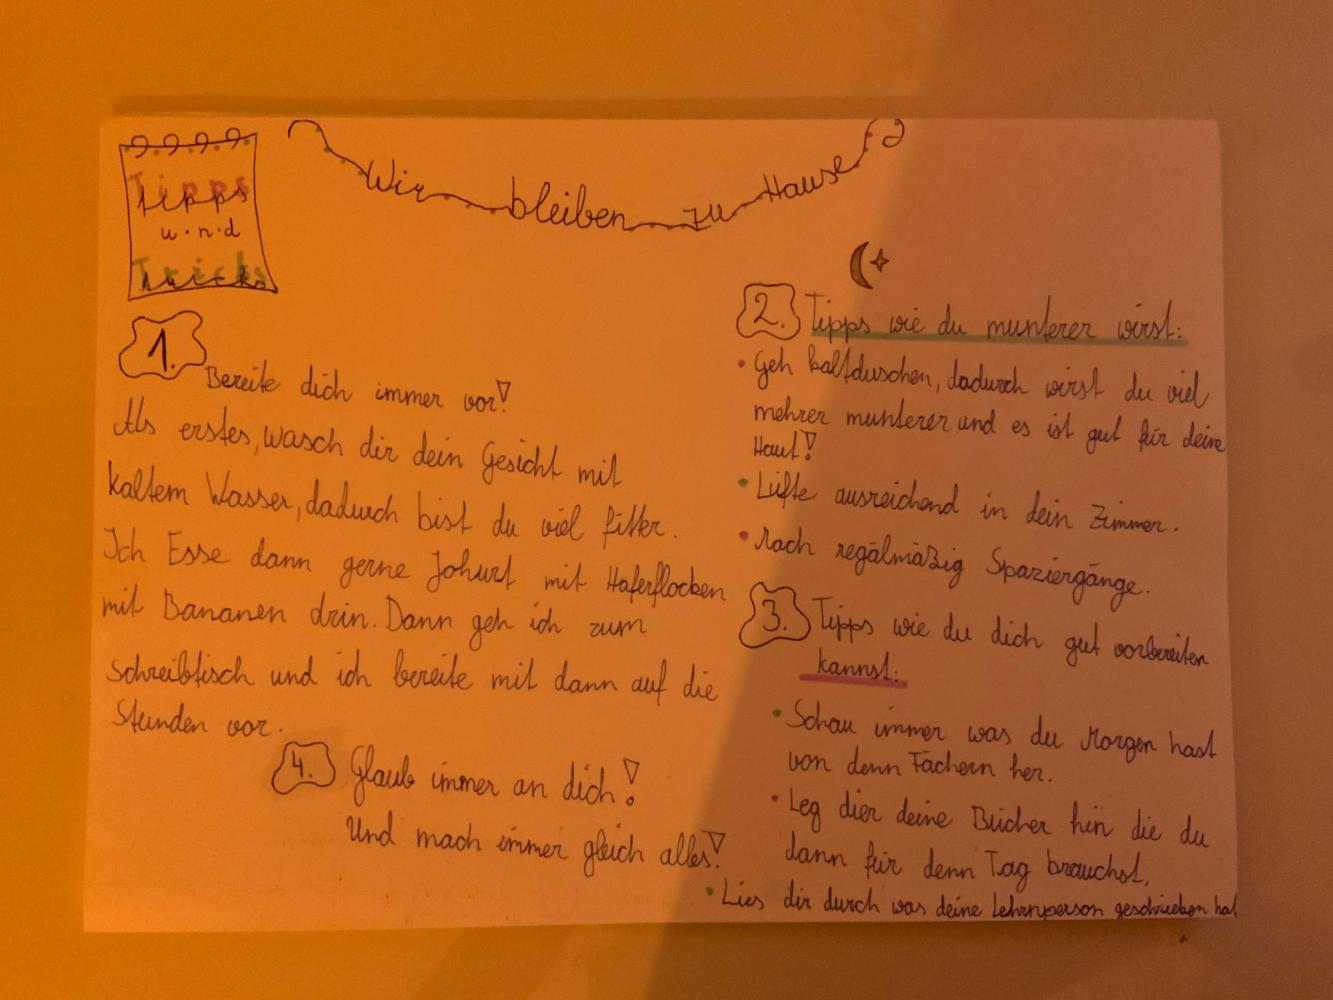 Tipps
u.n.d
Tricks
Wir bleiben zu Hause
1.
Bereite dich immer vor!
Als erstes, wasch dir dein Gesicht mit
kaltem Wasser, dadurch bist du viel fitter.
Ich Esse dann gerne Johurt mit Haferflocken
mit Bananen drin. Dann geh ich zum
Schreibtisch und ich bereite mit dann auf die
Stunden vor.
2. Tipps wie du munterer wirst:
• Geh kaltduschen, dadurch wirst du viel
mehrer munterer und es ist gut für deine
Haut!
• Lüfte ausreichend in dein Zimmer.
• Mach regälmäßig Spaziergänge.
3. Tipps wie du dich gut vorbereiten
kannst:
• Schau immer was du Morgen hast
von denn Fächern her.
• Leg dier deine Bücher hin die du
dann für denn Tag brauchst.
• Lies dir durch was deine Lehrnperson geschrieben hat
4. Glaub immer an dich!
Und mach immer gleich alles!